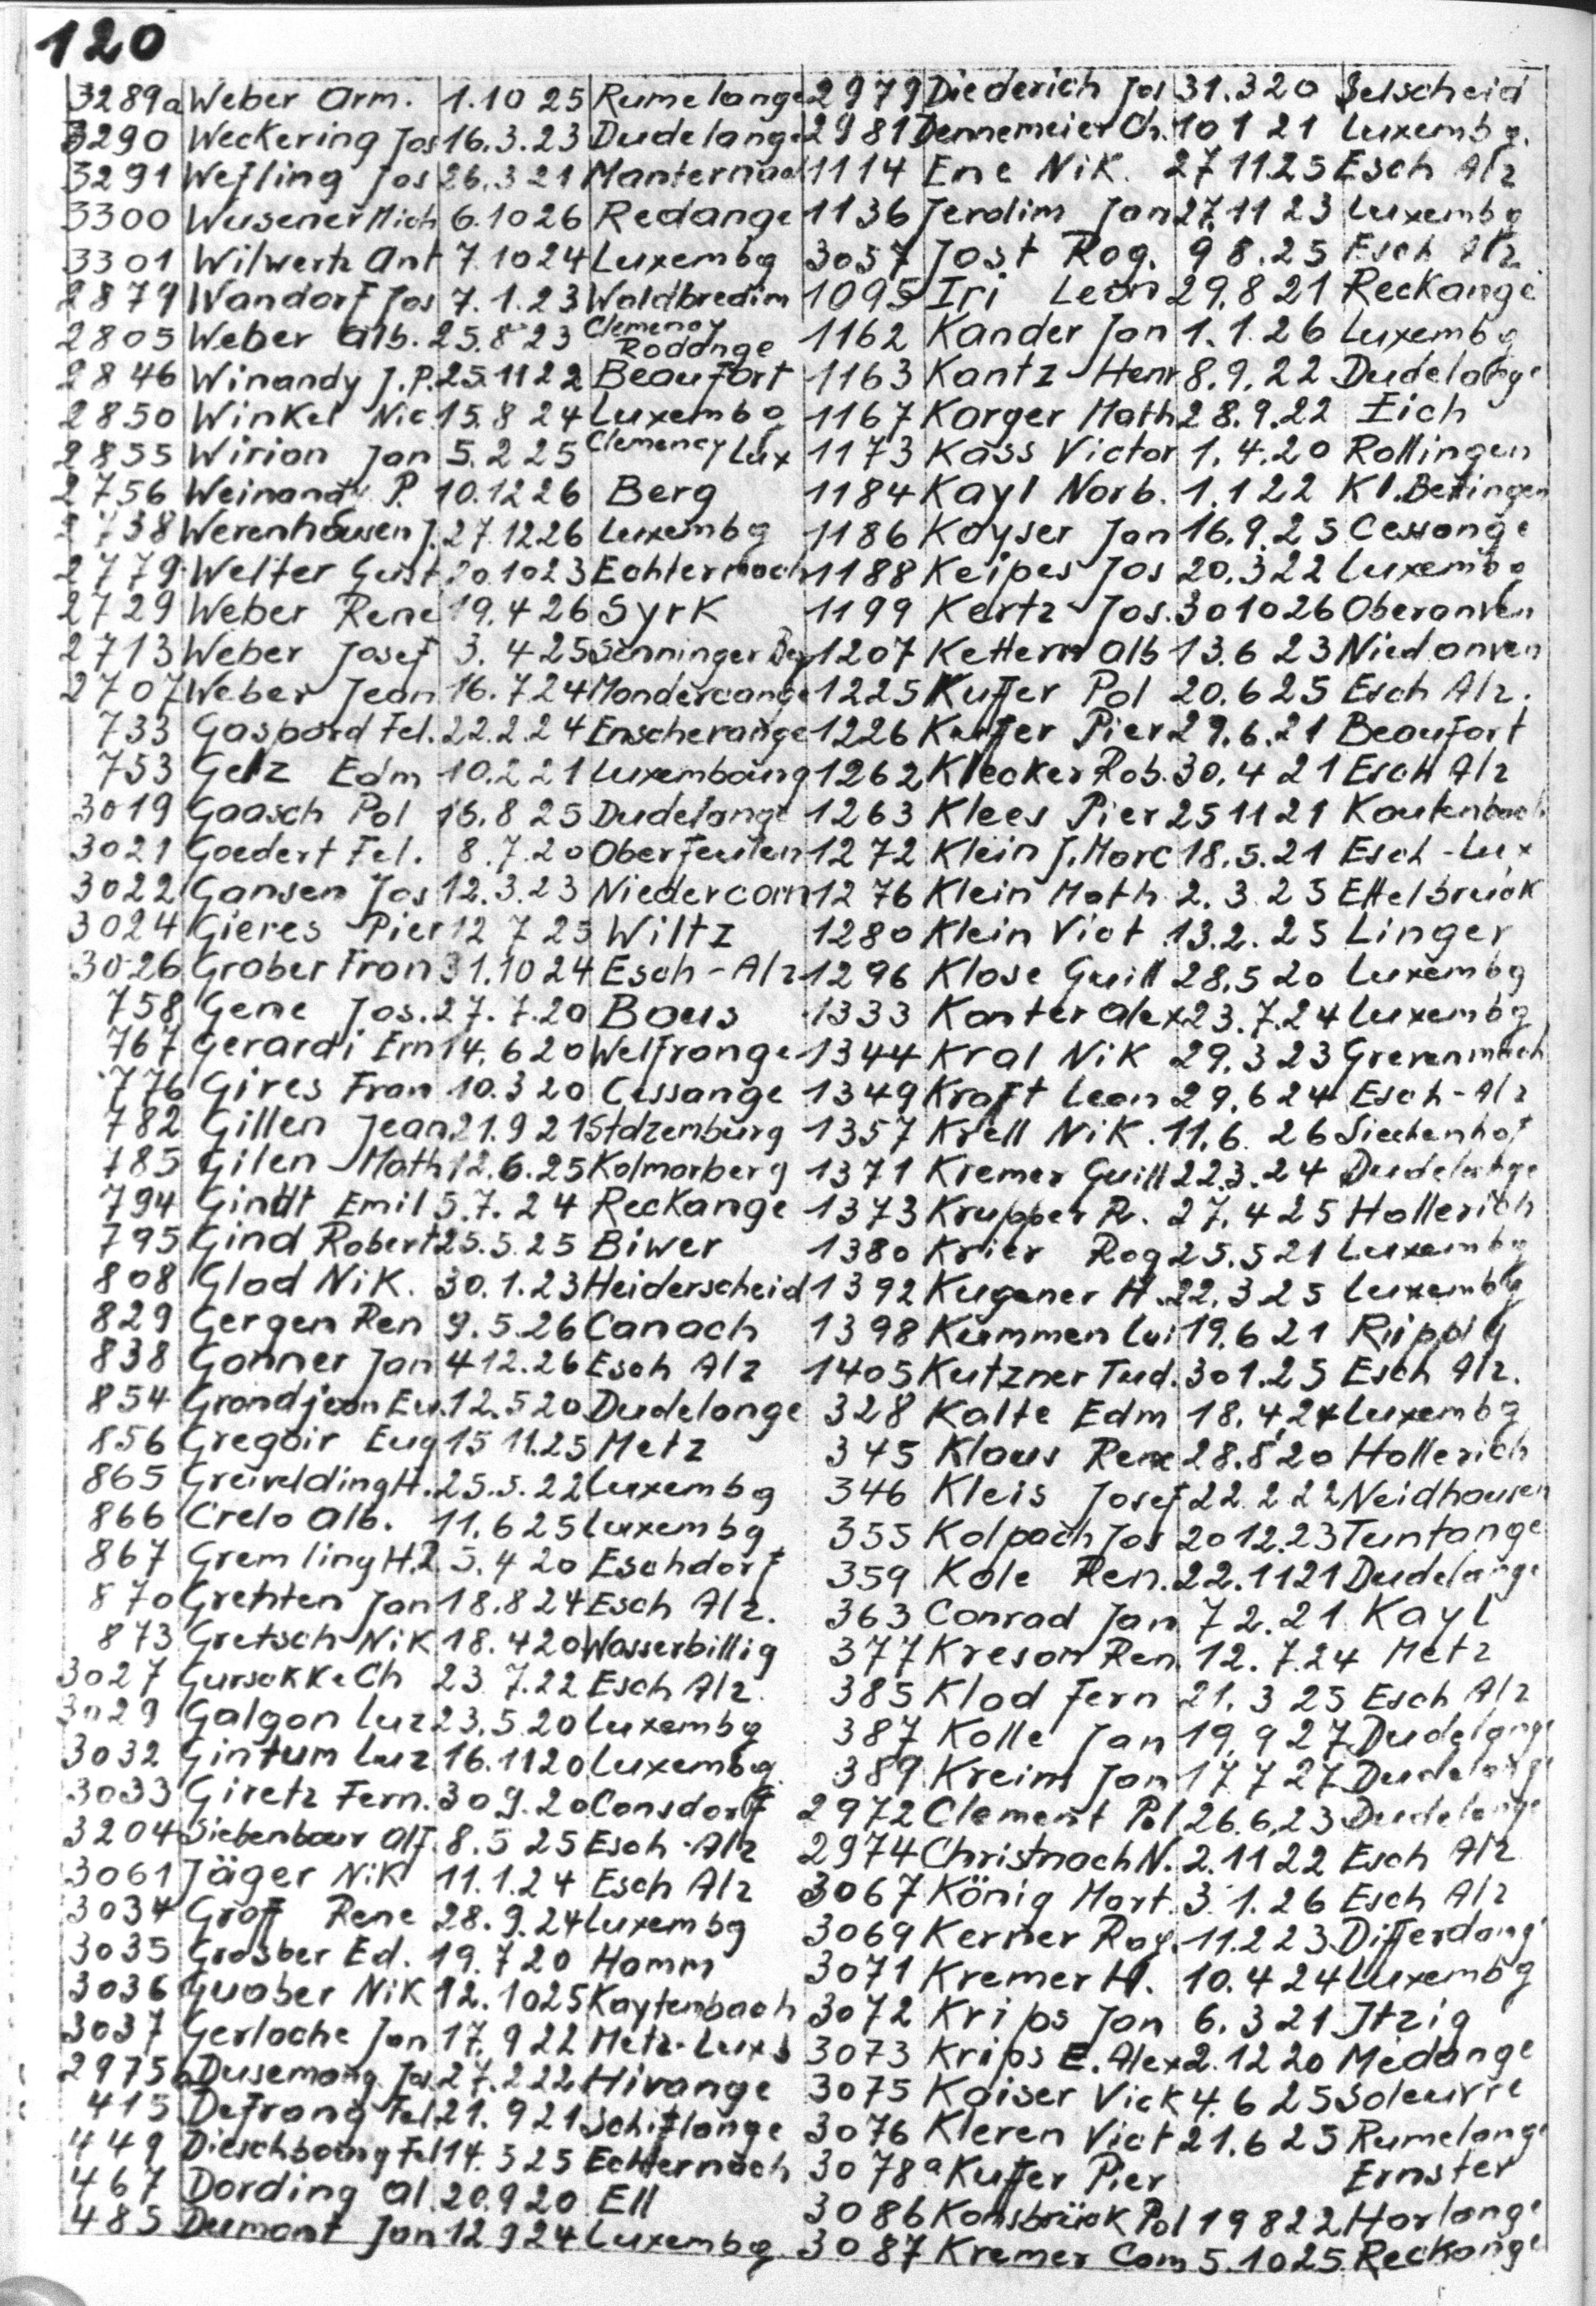 120
3289a Weber Arm. 1.10 25 Rumelange
3290 Weckering Jos 16.3.23 Dudelange
3291 Wefling Jos 26.3 21 Manternach
3300 Wusener Mich 6.10 26 Redange
3301 Wilwertz Ant 7.10 24 Luxembg
2879 Wandorf Jos 7.1.23 Waldbredim
2805 Weber Alb. 25.8 23 Clemency Rodange
2846 Winandy J.P. 25.11 22 Beaufort
2850 Winkel Nic 15.8 24 Luxembg
2855 Wirion Jan 5.2 25 Clemency Lux
2756 Weinandy P. 10.12 26 Berg
2738 Werenhausen J. 27.12 26 Luxembg
2779 Welter Gust 20.10 23 Echternach
2729 Weber Rene 19.4 26 Syrk
2713 Weber Josef 3.4 25 Senninger Bg
2707 Weber Jean 16.7 24 Mondercange
733 Gaspard Fel. 22.2.24 Enscherange
753 Gelz Edm 10.2 21 Luxembourg
3019 Gaasch Pol 16.8 25 Dudelange
3021 Goedert Fel. 8.7.20 Oberfeulen
3022 Gansen Jos 12.3.23 Niedercorn
3024 Gieres Pier 12 7 25 Wiltz
3026 Grober Fran 31.10 24 Esch-Alz
758 Gene Jos. 27.7.20 Bous
767 Gerardi Ern 14.6 20 Welfrange
776 Gires Fran 10.3 20 Cessange
782 Gillen Jean 21.9 21 Stolzemburg
785 Gilen Math 12.6.25 Kolmarberg
794 Gindt Emil 5.7.24 Reckange
795 Gind Robert 25.5.25 Biwer
808 Glod Nik. 30.1.23 Heiderscheid
829 Gergen Ren 9.5.26 Canach
838 Gonner Jan 4 12.26 Esch Alz
854 Grandjean Eu. 12.5 20 Dudelange
856 Gregoir Eug 15 11.25 Metz
865 Greiveldinger H. 25.5.22 Luxembg
866 Crelo Alb. 11.6 25 Luxembg
867 Gremling H.P. 5.4 20 Eschdorf
870 Grethten Jan 18.8 24 Esch Alz.
873 Gretsch Nik 18.4 20 Wasserbillig
3027 Gursakke Ch 23 7.22 Esch Alz.
3029 Galgon Luz 23.5.20 Luxembg
3032 Gintum Luz 16.11 20 Luxembg
3033 Giretz Fern. 30 9.20 Consdorf
3204 Siebenbour Alf. 8.5 25 Esch-Alz
3061 Jäger Nik 11.1.24 Esch Alz
3034 Groff Rene 28.9.24 Luxembg
3035 Grosber Ed. 19.7 20 Hamm
3036 Guober Nik 12.10 25 Kaytenbach
3037 Gerlache Jan 17.9 22 Metz-Luxb
2975b Dusemang Jos 27.2 22 Hivange
415 Defrang Fel 21.9 21 Schiflange
449 Dieschbourg Fel 14.3 25 Echternach
467 Dording Al. 20.9 20 Ell
485 Dumont Jan 12 9 24 Luxembg
2979 Diederich Jos 31.3 20 Selscheid
2981 Dennemeier Ch. 10 1 21 Luxembg.
1114 Ene Nik. 27 11 25 Esch Alz
1136 Jerolim Jan 27.11 23 Luxembg
3057 Jost Rog. 9 8.25 Esch Alz
1095 Iri Leon 29.8 21 Reckange
1162 Kander Jan 1.1.26 Luxembg
1163 Kantz Henr 8.9.22 Dudelange
1167 Karger Math 28.9.22 Eich
1173 Kass Victor 1.4.20 Rollingen
1184 Kayl Norb. 1.1 22 Kl.Bettingen
1186 Kayser Jan 16.9.25 Cessange
1188 Keipes Jos 20.3 22 Luxembg
1199 Kertz Jos. 30 10 26 Oberanven
1207 Kettern Alb 13.6 23 Niedanven
1225 Kuffer Pol 20.6 25 Esch Alz.
1226 Kuffer Pier 29.6.21 Beaufort
1262 Klecker Rob. 30.4 21 Esch Alz
1263 Klees Pier 25 11 21 Kautenbach
1272 Klein J.Marc 18.5.21 Esch-Lux
1276 Klein Math 2.3 25 Ettelbruck
1280 Klein Vict 13.2.25 Linger
1296 Klose Guill 28.5 20 Luxembg
1333 Konter Alex 23.7.24 Luxembg
1344 Kral Nik 29.3 23 Grevenmach
1349 Kraft Leon 29.6 24 Esch-Alz
1357 Krell Nik. 11.6.26 Siechenhof
1371 Kremer Guill 22.3.24 Dudelange
1373 Krupper R. 27.4 25 Hollerich
1380 Krier Rog 25.5 21 Luxembg
1392 Kugener H. 22.3 25 Luxembg
1398 Kummen Lui 19.6 21 Rippig
1405 Kutzner Tud. 30 1.25 Esch Alz.
328 Kalte Edm 18.4.24 Luxembg
345 Klaus Rene 28.8 20 Hollerich
346 Kleis Josef 22.2 22 Neidhausen
355 Kolpach Jos 20 12.23 Tuntange
359 Kole Ren. 22.11 21 Dudelange
363 Conrad Jan 7 2.21 Kayl
377 Kreson Ren 12.7.24 Metz
385 Klod Fern 21.3 25 Esch Alz
387 Kolle Jan 19.9 27 Dudelange
389 Kreins Jan 17 7 27 Dudelange
2972 Clement Pol 26.6.23 Dudelange
2974 Christnach N. 2.11 22 Esch Alz
3067 König Mart. 3 1.26 Esch Alz
3069 Kerner Rog. 11.2 23 Differdang
3071 Kremer H. 10.4 24 Luxembg
3072 Krips Jan 6.3 21 Itzig
3073 Krips E. Alex 2.12 20 Medange
3075 Kaiser Vick 4.6 25 Soleuvre
3076 Kleren Vict 21.6 25 Rumelange
3078a Kuffer Pier Ernster
3086 Konsbrück Pol 19 8 22 Harlange
3087 Kremer Cam 5.10 25 Reckange